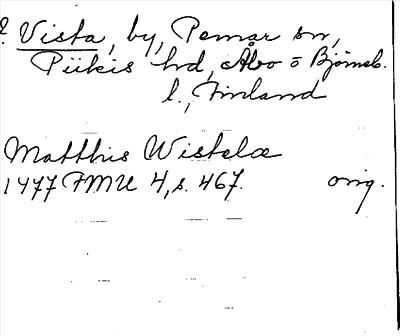 ? Vista, by, Pemar sn,
Piikis hd, Åbo o Björneb.
l., Finland
Matthis Wistelæ
1477 FMU 4, s. 467. orig.